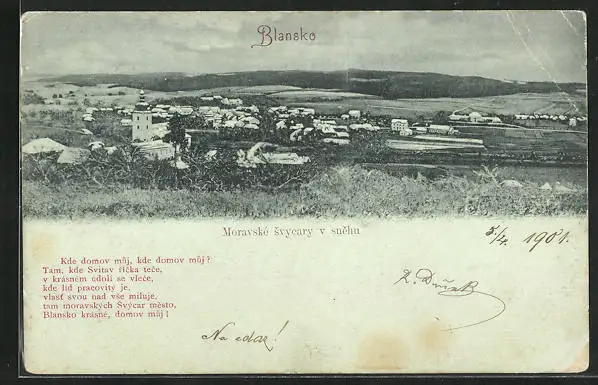 Blansko
Moravské švycary v sněhu
5/4 1901.
Kde domov můj, kde domov můj?
Tam, kde Svitav říčka teče,
v krásném údolí se vleče,
kde lid pracovitý je,
vlasť svou nad vše miluje,
tam moravských Švýcar město,
Blansko krásné, domov můj!
Na zdar!